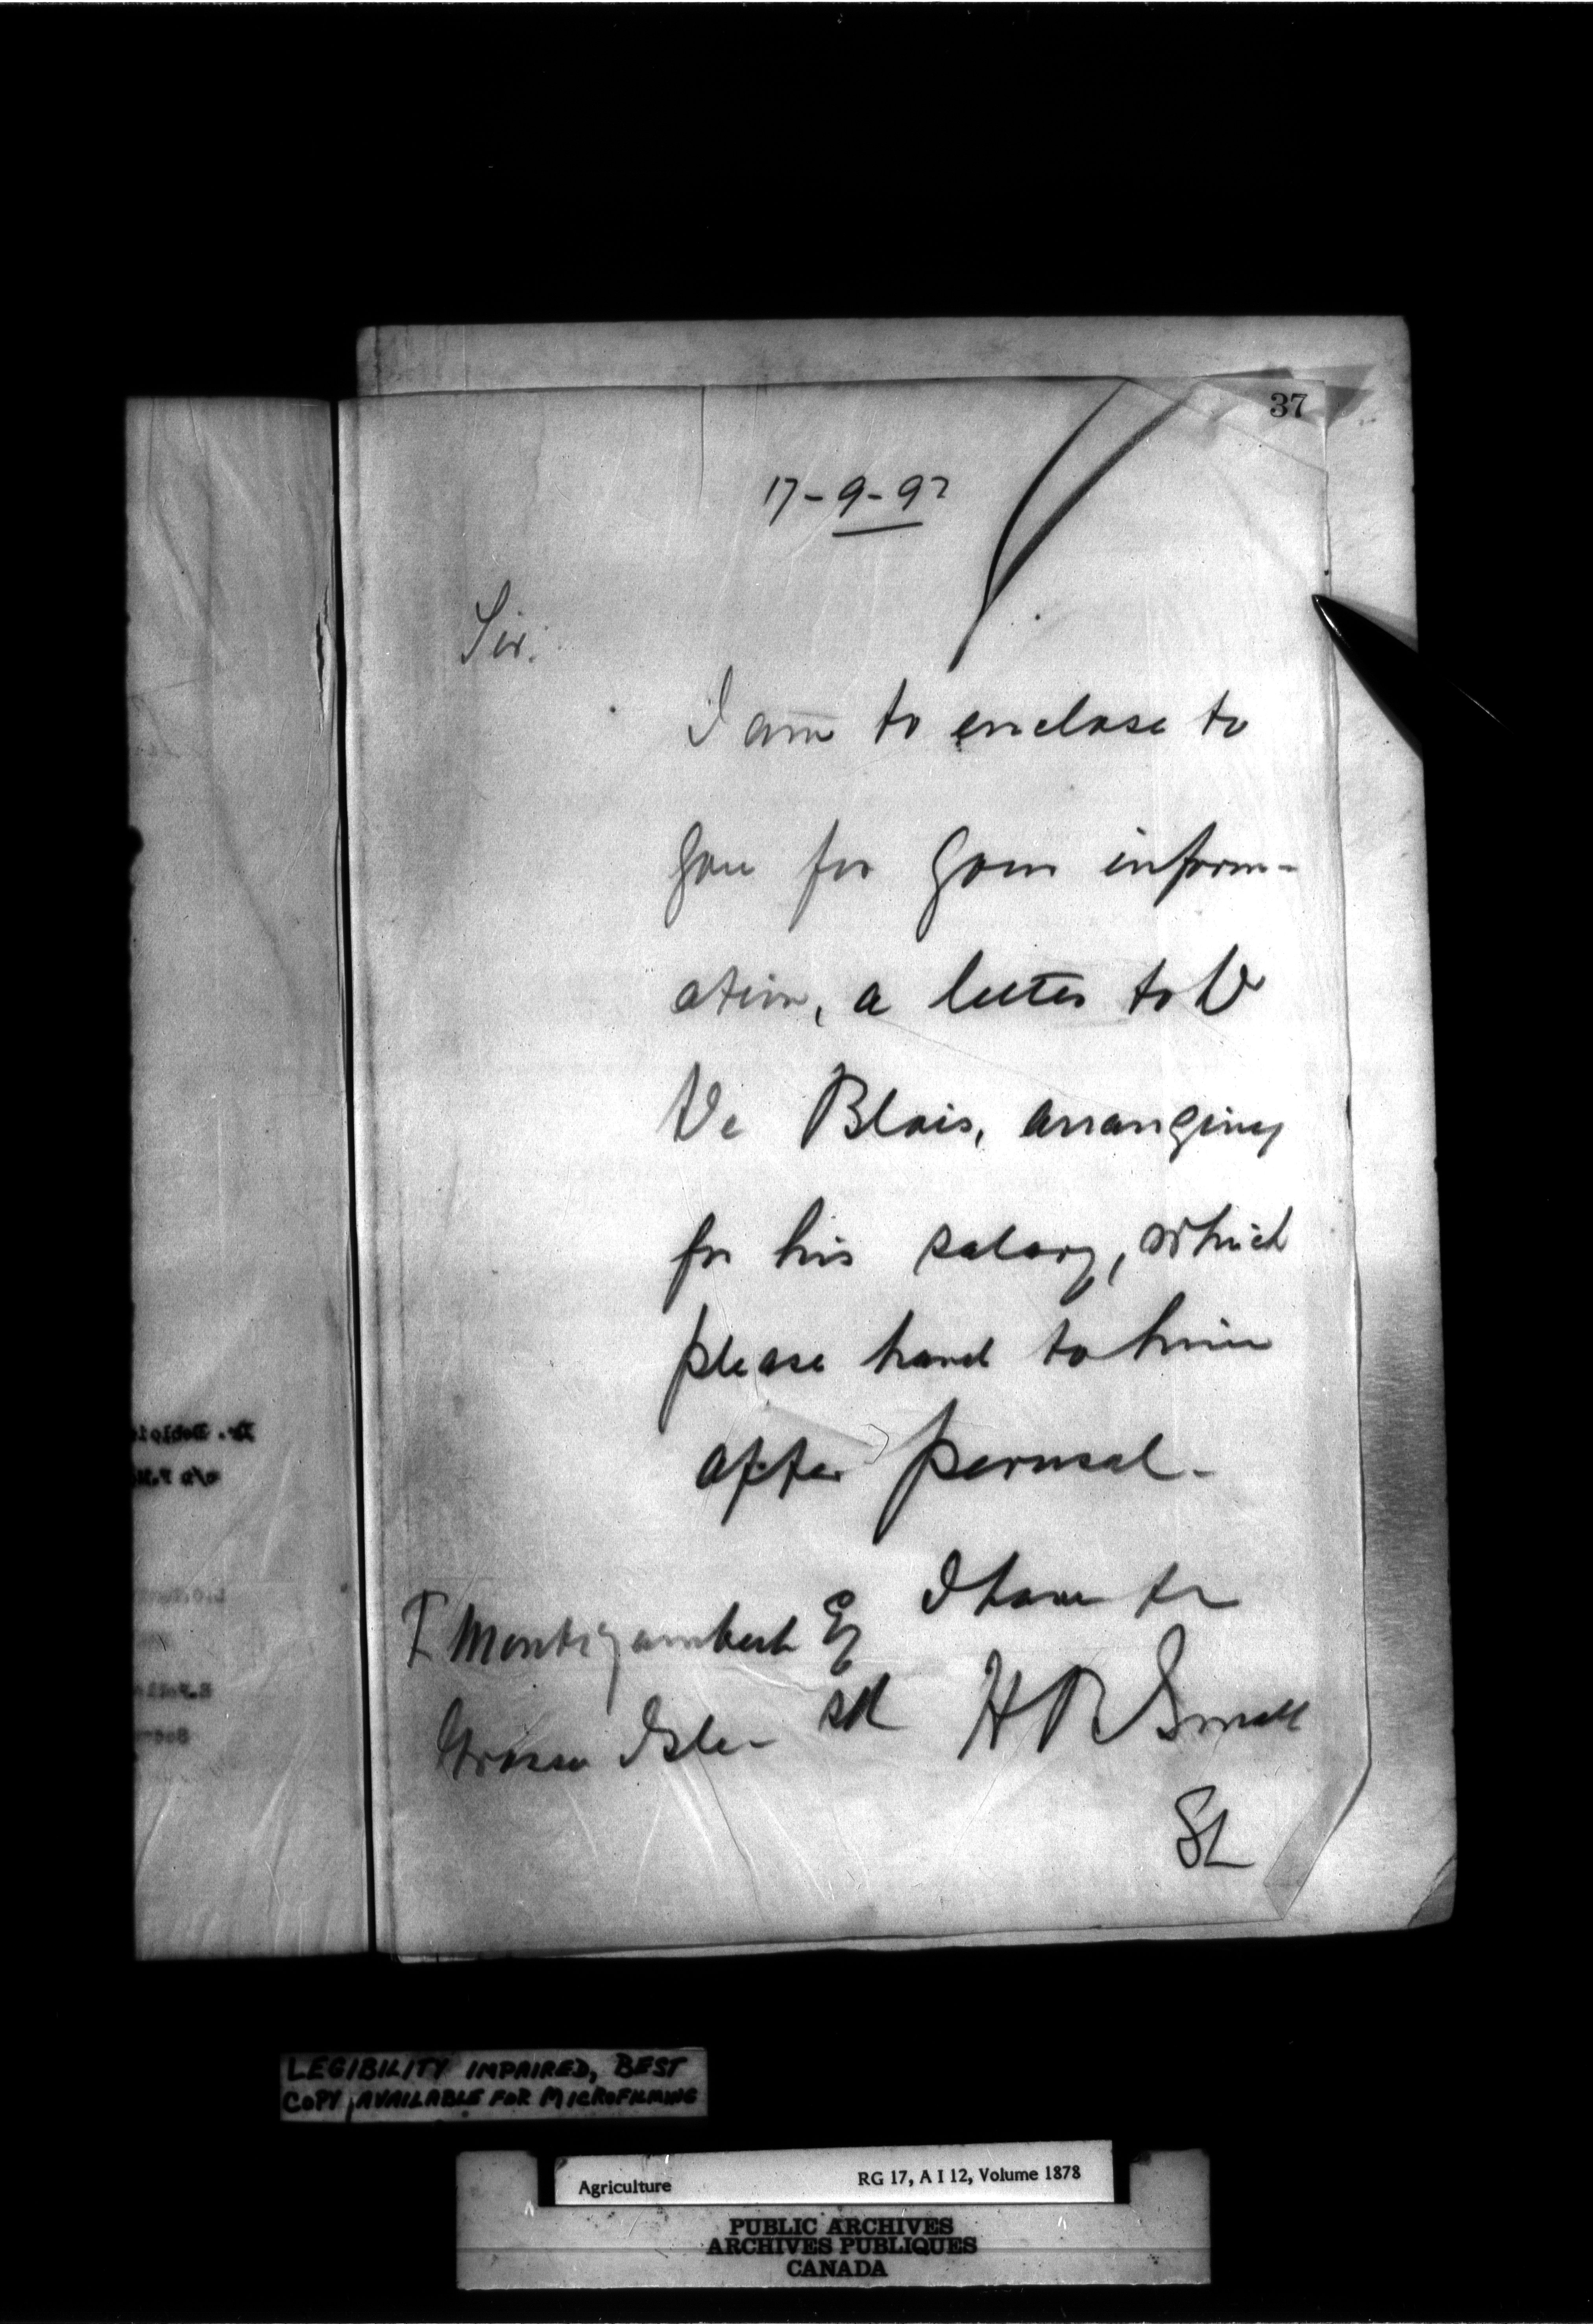 37
17-9-92
Sir.
I am to enclose to
you for your inform-
ation, a letter to Dr
De Blois, arranging
for his salary, which
please hand to him
after perusal-
I have &c
F Montizambert Esq
H B Small
Grosse Isle-
LEGIBILITY IMPAIRED, BEST
COPY AVAILABLE FOR MICROFILMING
Agriculture RG 17, A I 12, Volume 1878
PUBLIC ARCHIVES
ARCHIVES PUBLIQUES
CANADA